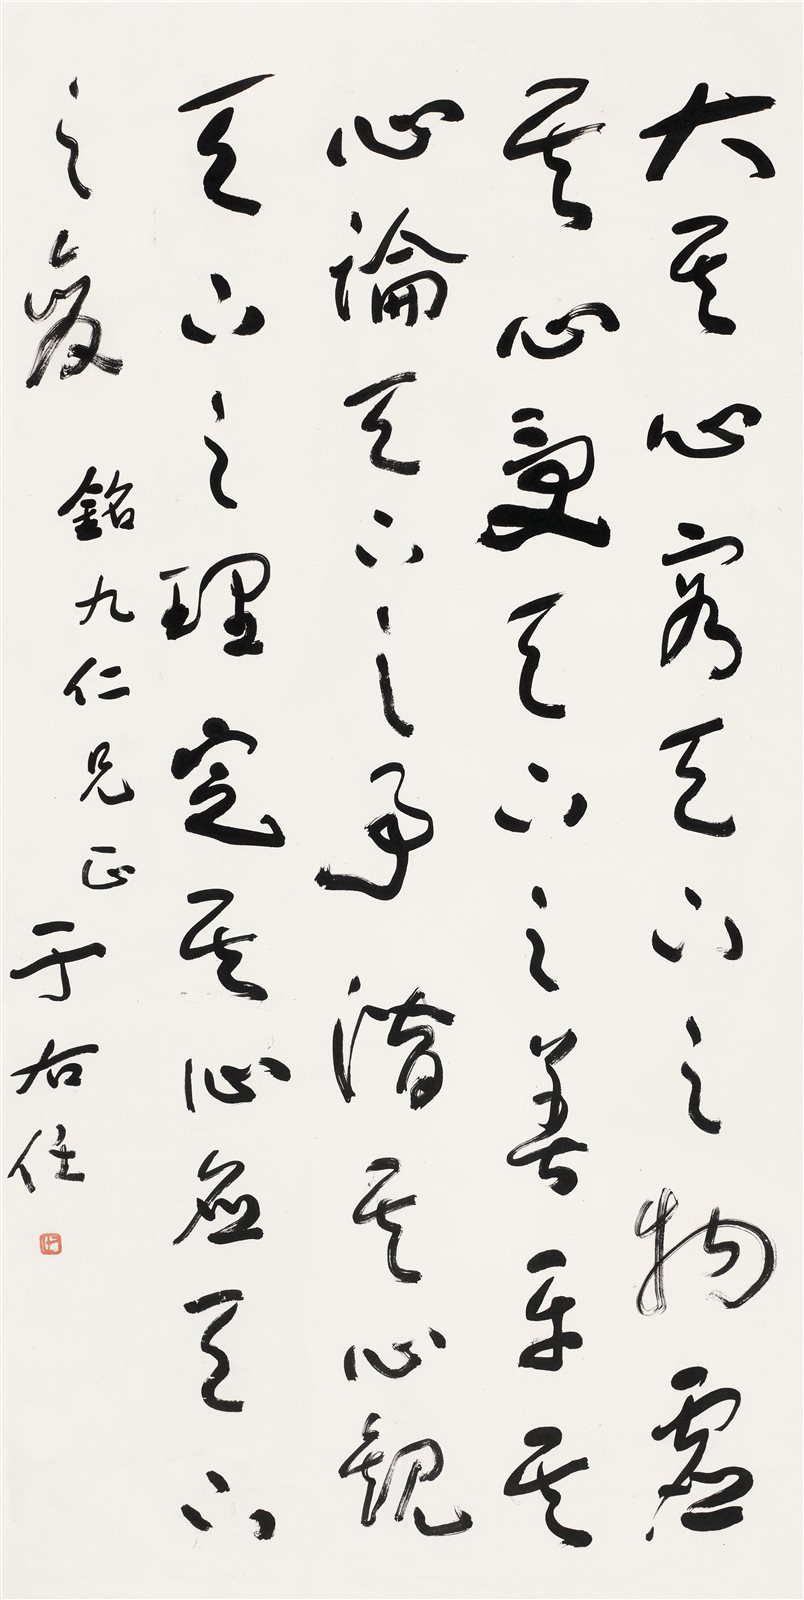 大其心容天下之物虛
其心受天下之善平其
心論天下之事潛其心觀
天下之理定其心應天下
之變 銘九仁兄正 于右任